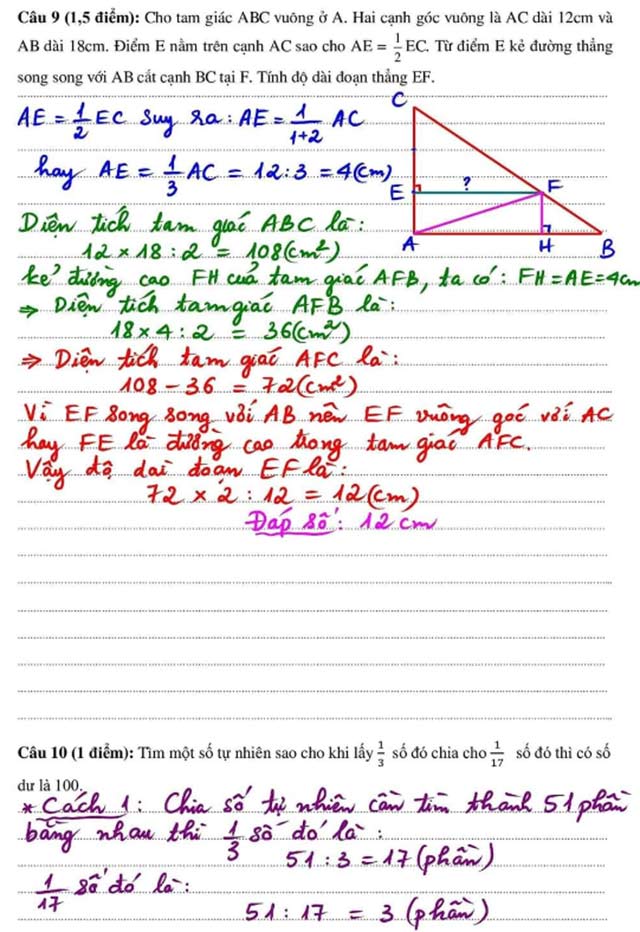 Câu 9 (1,5 điểm): Cho tam giác ABC vuông ở A. Hai cạnh góc vuông là AC dài 12cm và
AB dài 18cm. Điểm E nằm trên cạnh AC sao cho AE = 1/2 EC. Từ điểm E kẻ đường thẳng
song song với AB cắt cạnh BC tại F. Tính độ dài đoạn thẳng EF.
C
AE = 1/2 EC suy ra : AE = 1/(1+2) AC
hay AE = 1/3 AC = 12 : 3 = 4(cm)
E ? F
A H B
Diện tích tam giác ABC là :
12 × 18 : 2 = 108(cm²)
kẻ đường cao FH của tam giác AFB, ta có : FH = AE = 4cm
⇒ Diện tích tam giác AFB là :
18 × 4 : 2 = 36(cm²)
⇒ Diện tích tam giác AFC là :
108 - 36 = 72(cm²)
Vì EF song song với AB nên EF vuông góc với AC
hay FE là đường cao trong tam giác AFC.
Vậy độ dài đoạn EF là :
72 × 2 : 12 = 12(cm)
Đáp số : 12 cm
Câu 10 (1 điểm): Tìm một số tự nhiên sao cho khi lấy 1/3 số đó chia cho 1/17 số đó thì có số
dư là 100.
* Cách 1 : Chia số tự nhiên cần tìm thành 51 phần
bằng nhau thì 1/3 số đó là :
51 : 3 = 17 (phần)
1/17 số đó là :
51 : 17 = 3 (phần)